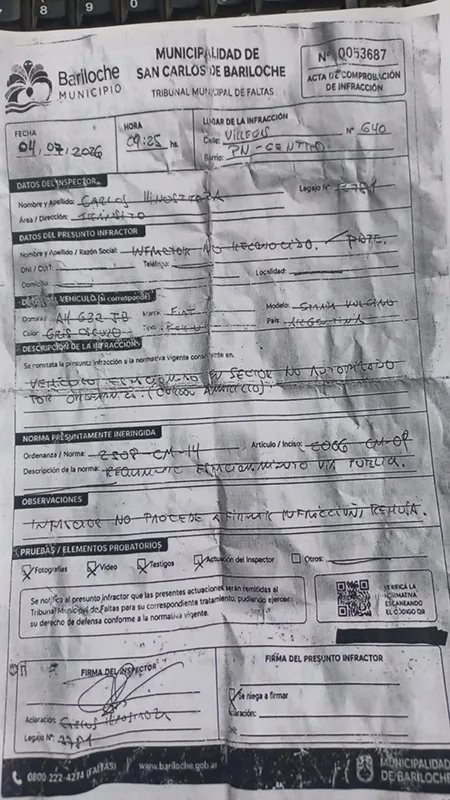 8 9 0
Bariloche
MUNICIPIO
MUNICIPALIDAD DE
SAN CARLOS DE BARILOCHE
TRIBUNAL MUNICIPAL DE FALTAS
N° 0053687
ACTA DE COMPROBACIÓN
DE INFRACCIÓN
FECHA
04/07/2026
HORA
09:25 hs.
LUGAR DE LA INFRACCIÓN
Calle: VILLEGAS N° 640
Barrio: PN-CENTRO
DATOS DEL INSPECTOR
Nombre y Apellido: CARLOS HINOSTROZA Legajo N°
Área / Dirección: TRÁNSITO
DATOS DEL PRESUNTO INFRACTOR
Nombre y Apellido / Razón Social: INFRACTOR NO RECONOCIDO.
DNI / CUIT: Teléfono: Localidad:
Domicilio:
VEHÍCULO (si corresponde)
Dominio: AH 632 Marca: FIAT Modelo:
Color: GRIS OSCURO Tipo: País: ARGENTINA
DESCRIPCIÓN DE LA INFRACCIÓN
Se constata la presunta infracción a la normativa vigente consistente en:
VEHICULO ESTACIONADO EN SECTOR NO AUTORIZADO
POR ORDENANZA.
NORMA PRESUNTAMENTE INFRINGIDA
Ordenanza / Norma: CM-14 Artículo / Inciso: CM-
Descripción de la norma: ESTACIONAMIENTO VIA PUBLICA.
OBSERVACIONES
INFRACTOR NO PROCEDE A FIRMAR INFRACCION,
PRUEBAS / ELEMENTOS PROBATORIOS
Fotografías Video Testigos Actuación del Inspector Otros:
Se notifica al presunto infractor que las presentes actuaciones serán remitidas al
Tribunal Municipal de Faltas para su correspondiente tratamiento, pudiendo ejercer
su derecho de defensa conforme a la normativa vigente.
VERIFICÁ LA
NORMATIVA
ESCANEANDO
EL CÓDIGO QR
FIRMA DEL INSPECTOR
Aclaración: CARLOS HINOSTROZA
Legajo N°:
FIRMA DEL PRESUNTO INFRACTOR
Se niega a firmar
Aclaración:
0800 222-4274 (FALTAS) www.bariloche.gob.ar
MUNICIPALIDAD
DE BARILOCHE